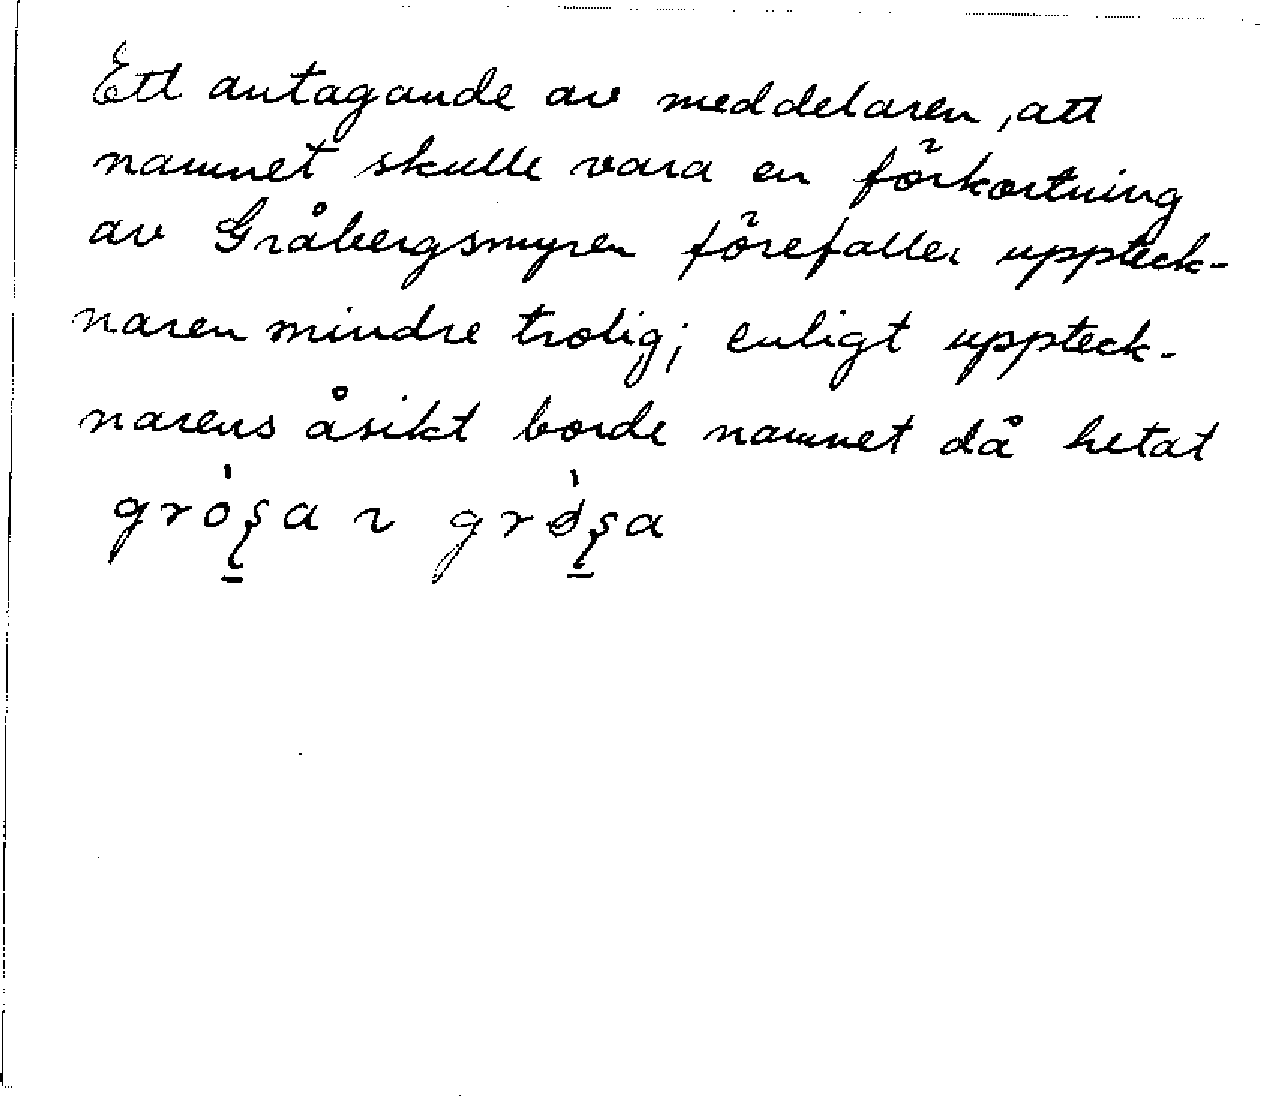 Ett antagande av meddelaren, att
namnet skulle vara en förkortning
av Gråbergsmyren förefaller uppteck-
naren mindre trolig; enligt uppteck-
narens åsikt borde namnet då hetat